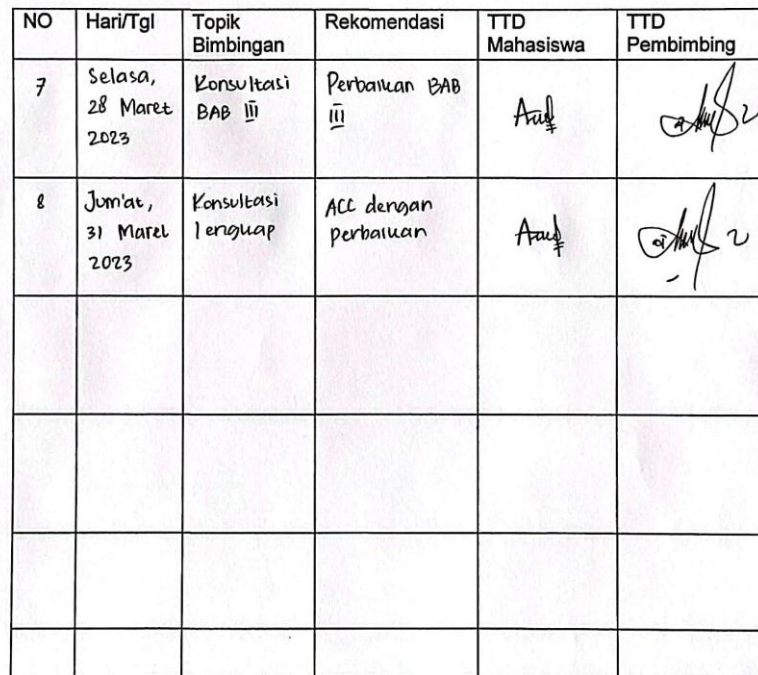 NO Hari/Tgl Topik Bimbingan Rekomendasi TTD Mahasiswa TTD Pembimbing
7 Selasa, 28 Maret 2023 Konsultasi BAB III Perbaikan BAB III
8 Jum'at, 31 Maret 2023 Konsultasi lengkap ACC dengan perbaikan